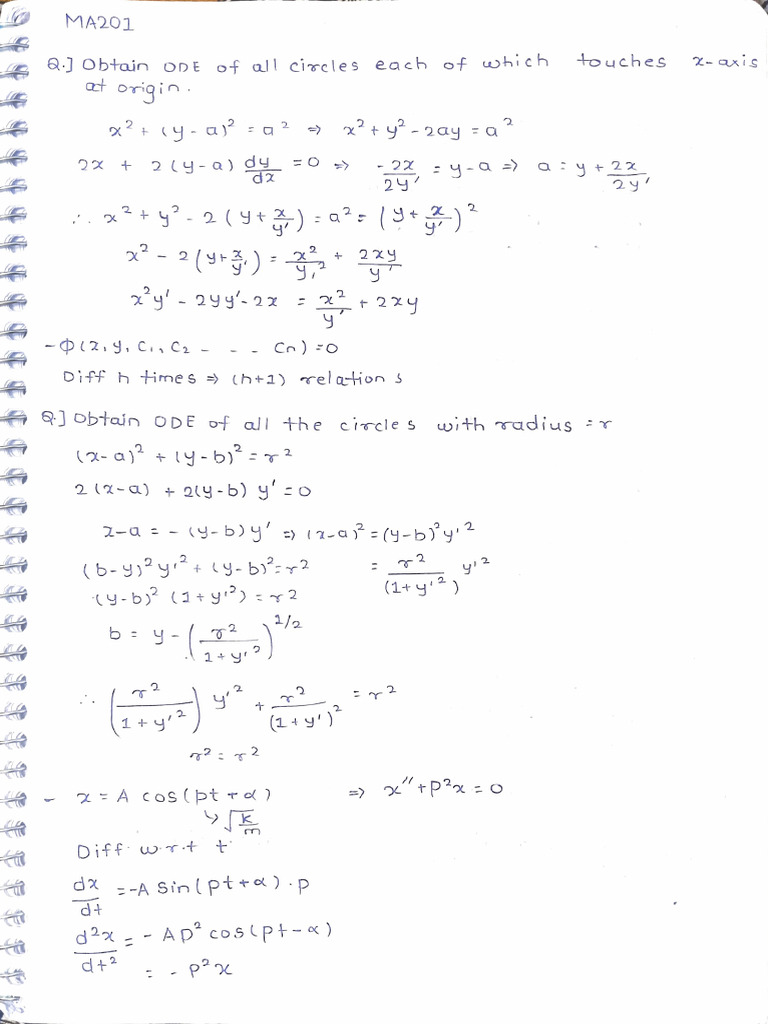 MA201
Q.] Obtain ODE of all circles each of which touches x-axis
at origin.
x² + (y - a)² = a² ⇒ x² + y² - 2ay = a²
2x + 2(y-a) dy/dx = 0 ⇒ -2x/2y' = y - a ⇒ a = y + 2x/2y'
∴ x² + y² - 2(y + x/y') = a² = (y + x/y')²
x² - 2(y + x/y') = x²/y'² + 2xy/y'
x²y' - 2yy' - 2x = x²/y' + 2xy
- Φ(x, y, C₁, C₂ - - - Cn) = 0
Diff n times ⇒ (n+1) relations
Q.] Obtain ODE of all the circles with radius = r
(x-a)² + (y-b)² = r²
2(x-a) + 2(y-b) y' = 0
x-a = -(y-b)y' ⇒ (x-a)² = (y-b)²y'²
(b-y)²y'² + (y-b)² = r² = r²/(1+y'²) y'²
(y-b)² (1+y'²) = r²
b = y - (r²/1+y'²)^1/2
∴ (r²/1+y'²) y'² + r²/(1+y')² = r²
r² = r²
- x = A cos(pt+α) ⇒ x'' + p²x = 0
↳ √k/m
Diff w.r.t t
dx/dt = -A sin(pt+α).p
d²x/dt² = -Ap² cos(pt-α)
= -p²x